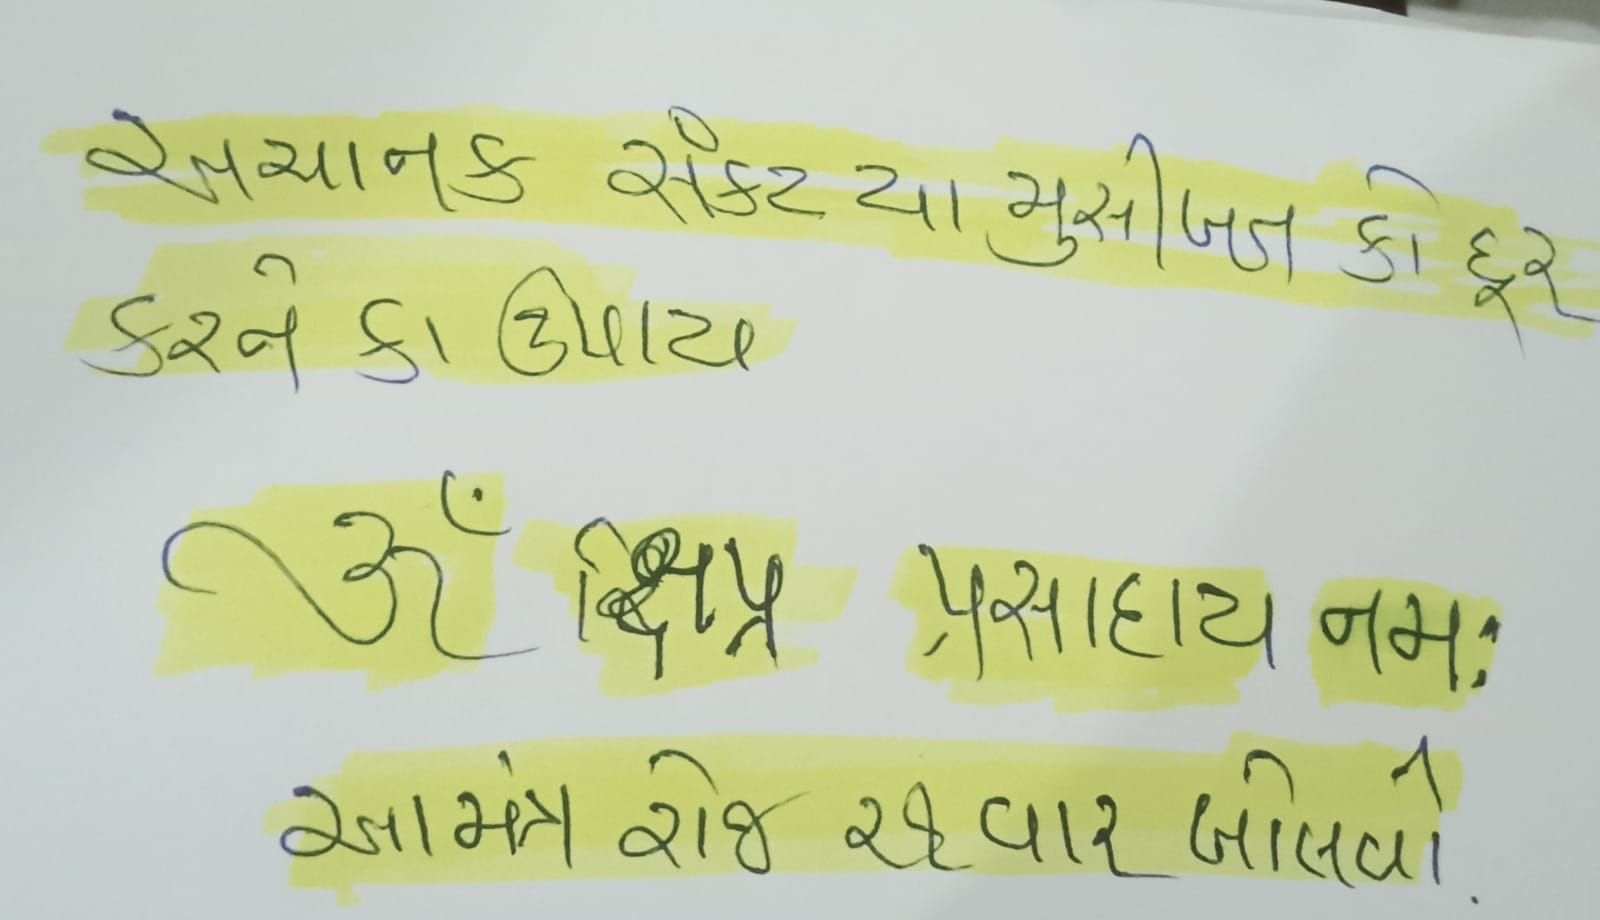 અચાનક સંકટ યા મુસીબત કો દૂર
કરને કા ઉપાય
ૐ ક્ષિપ્ર પ્રસાદાય નમઃ
આ મંત્ર રોજ વાર બોલવો.